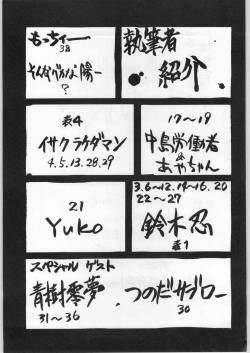 もっちィー
38
そんなバカな陽一
?
執筆者
紹介
表4
イサクラケダマン
4.5.13.28.29
17〜19
中島労働者
あやちゃん
21
Yuko
3.6〜12.14〜16.20
22〜27
鈴木忍
表1
スペシャル ゲスト
青樹零夢
31〜36
つのだサブロー
30